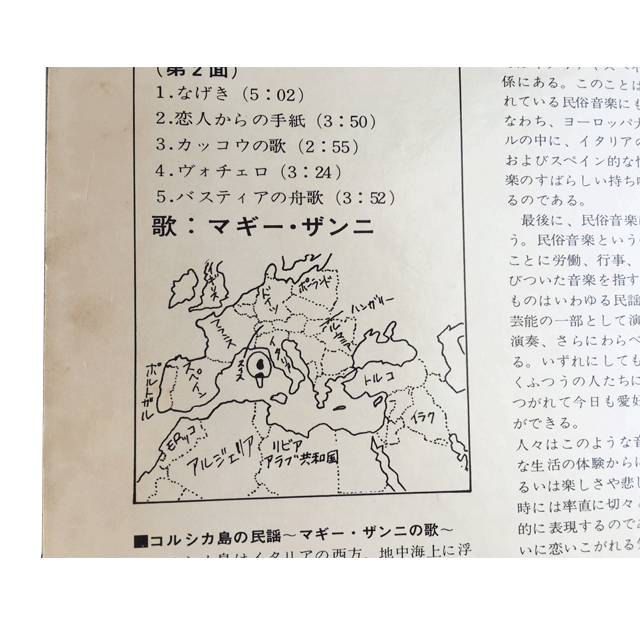 (第2面)
1.なげき(5:02)
2.恋人からの手紙(3:50)
3.カッコウの歌(2:55)
4.ヴォチェロ(3:24)
5.バスティアの舟歌(3:52)
歌:マギー・ザンニ
イギリス
ドイツ
ポーランド
ハンガリー
フランス
イタリア
スペイン
ポルトガル
トルコ
イラク
モロッコ
アルジェリア
リビア
アラブ共和国
■コルシカ島の民謡~マギー・ザンニの歌~
島はイタリアの西方、地中海上に浮
係にある。このことは
れている民俗音楽にも
なわち、ヨーロッパナ
ルの中に、イタリアの
およびスペイン的な性
楽のすばらしい持ち味
るのである。
最後に、民俗音楽に
う。民俗音楽という
ことに労働、行事、
びついた音楽を指す
ものはいわゆる民謡
芸能の一部として演
演奏、さらにわらべ
る。いずれにしても
くふつうの人たちに
つがれて今日も愛好
ができる。
人々はこのような音
な生活の体験から
るいは楽しさや悲し
時には率直に切々と
的に表現するのであ
いに恋いこがれる